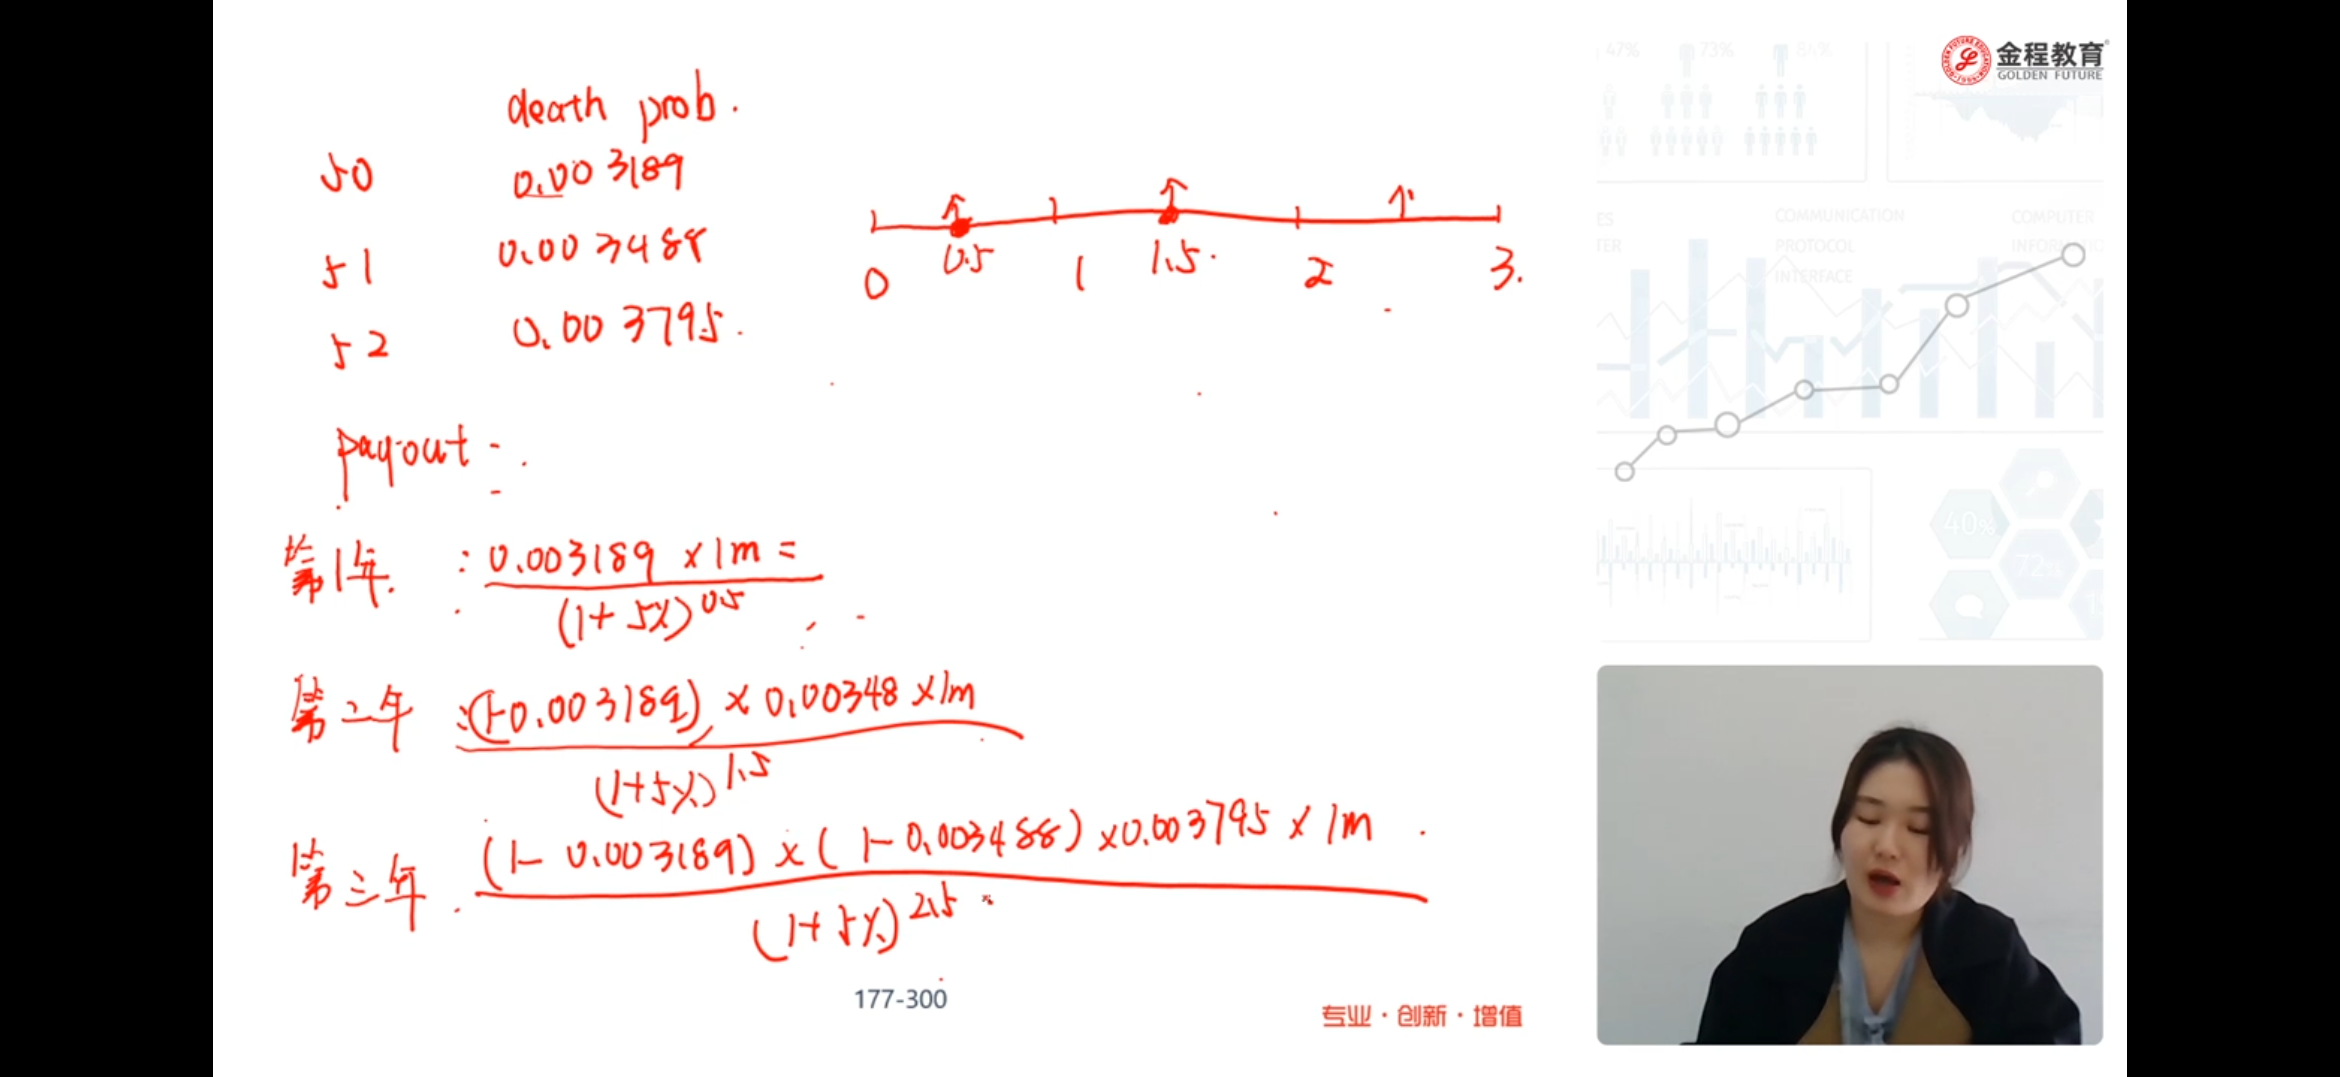 金程教育
GOLDEN FUTURE
47% 73% 84%
death prob.
50 0.003189
51 0.003488
52 0.003795.
0 0.5 1 1.5. 2 3.
COMMUNICATION
PROTOCOL
INTERFACE
COMPUTER
payout:
第1年. : 0.003189 × 1m =
(1+5%)^0.5
第二年 : (1-0.003189) × 0.00348 × 1m
(1+5%)^1.5
第三年. (1-0.003189) × (1-0.003488) × 0.003795 × 1m
(1+5%)^2.5
40%
72%
177-300
专业·创新·增值